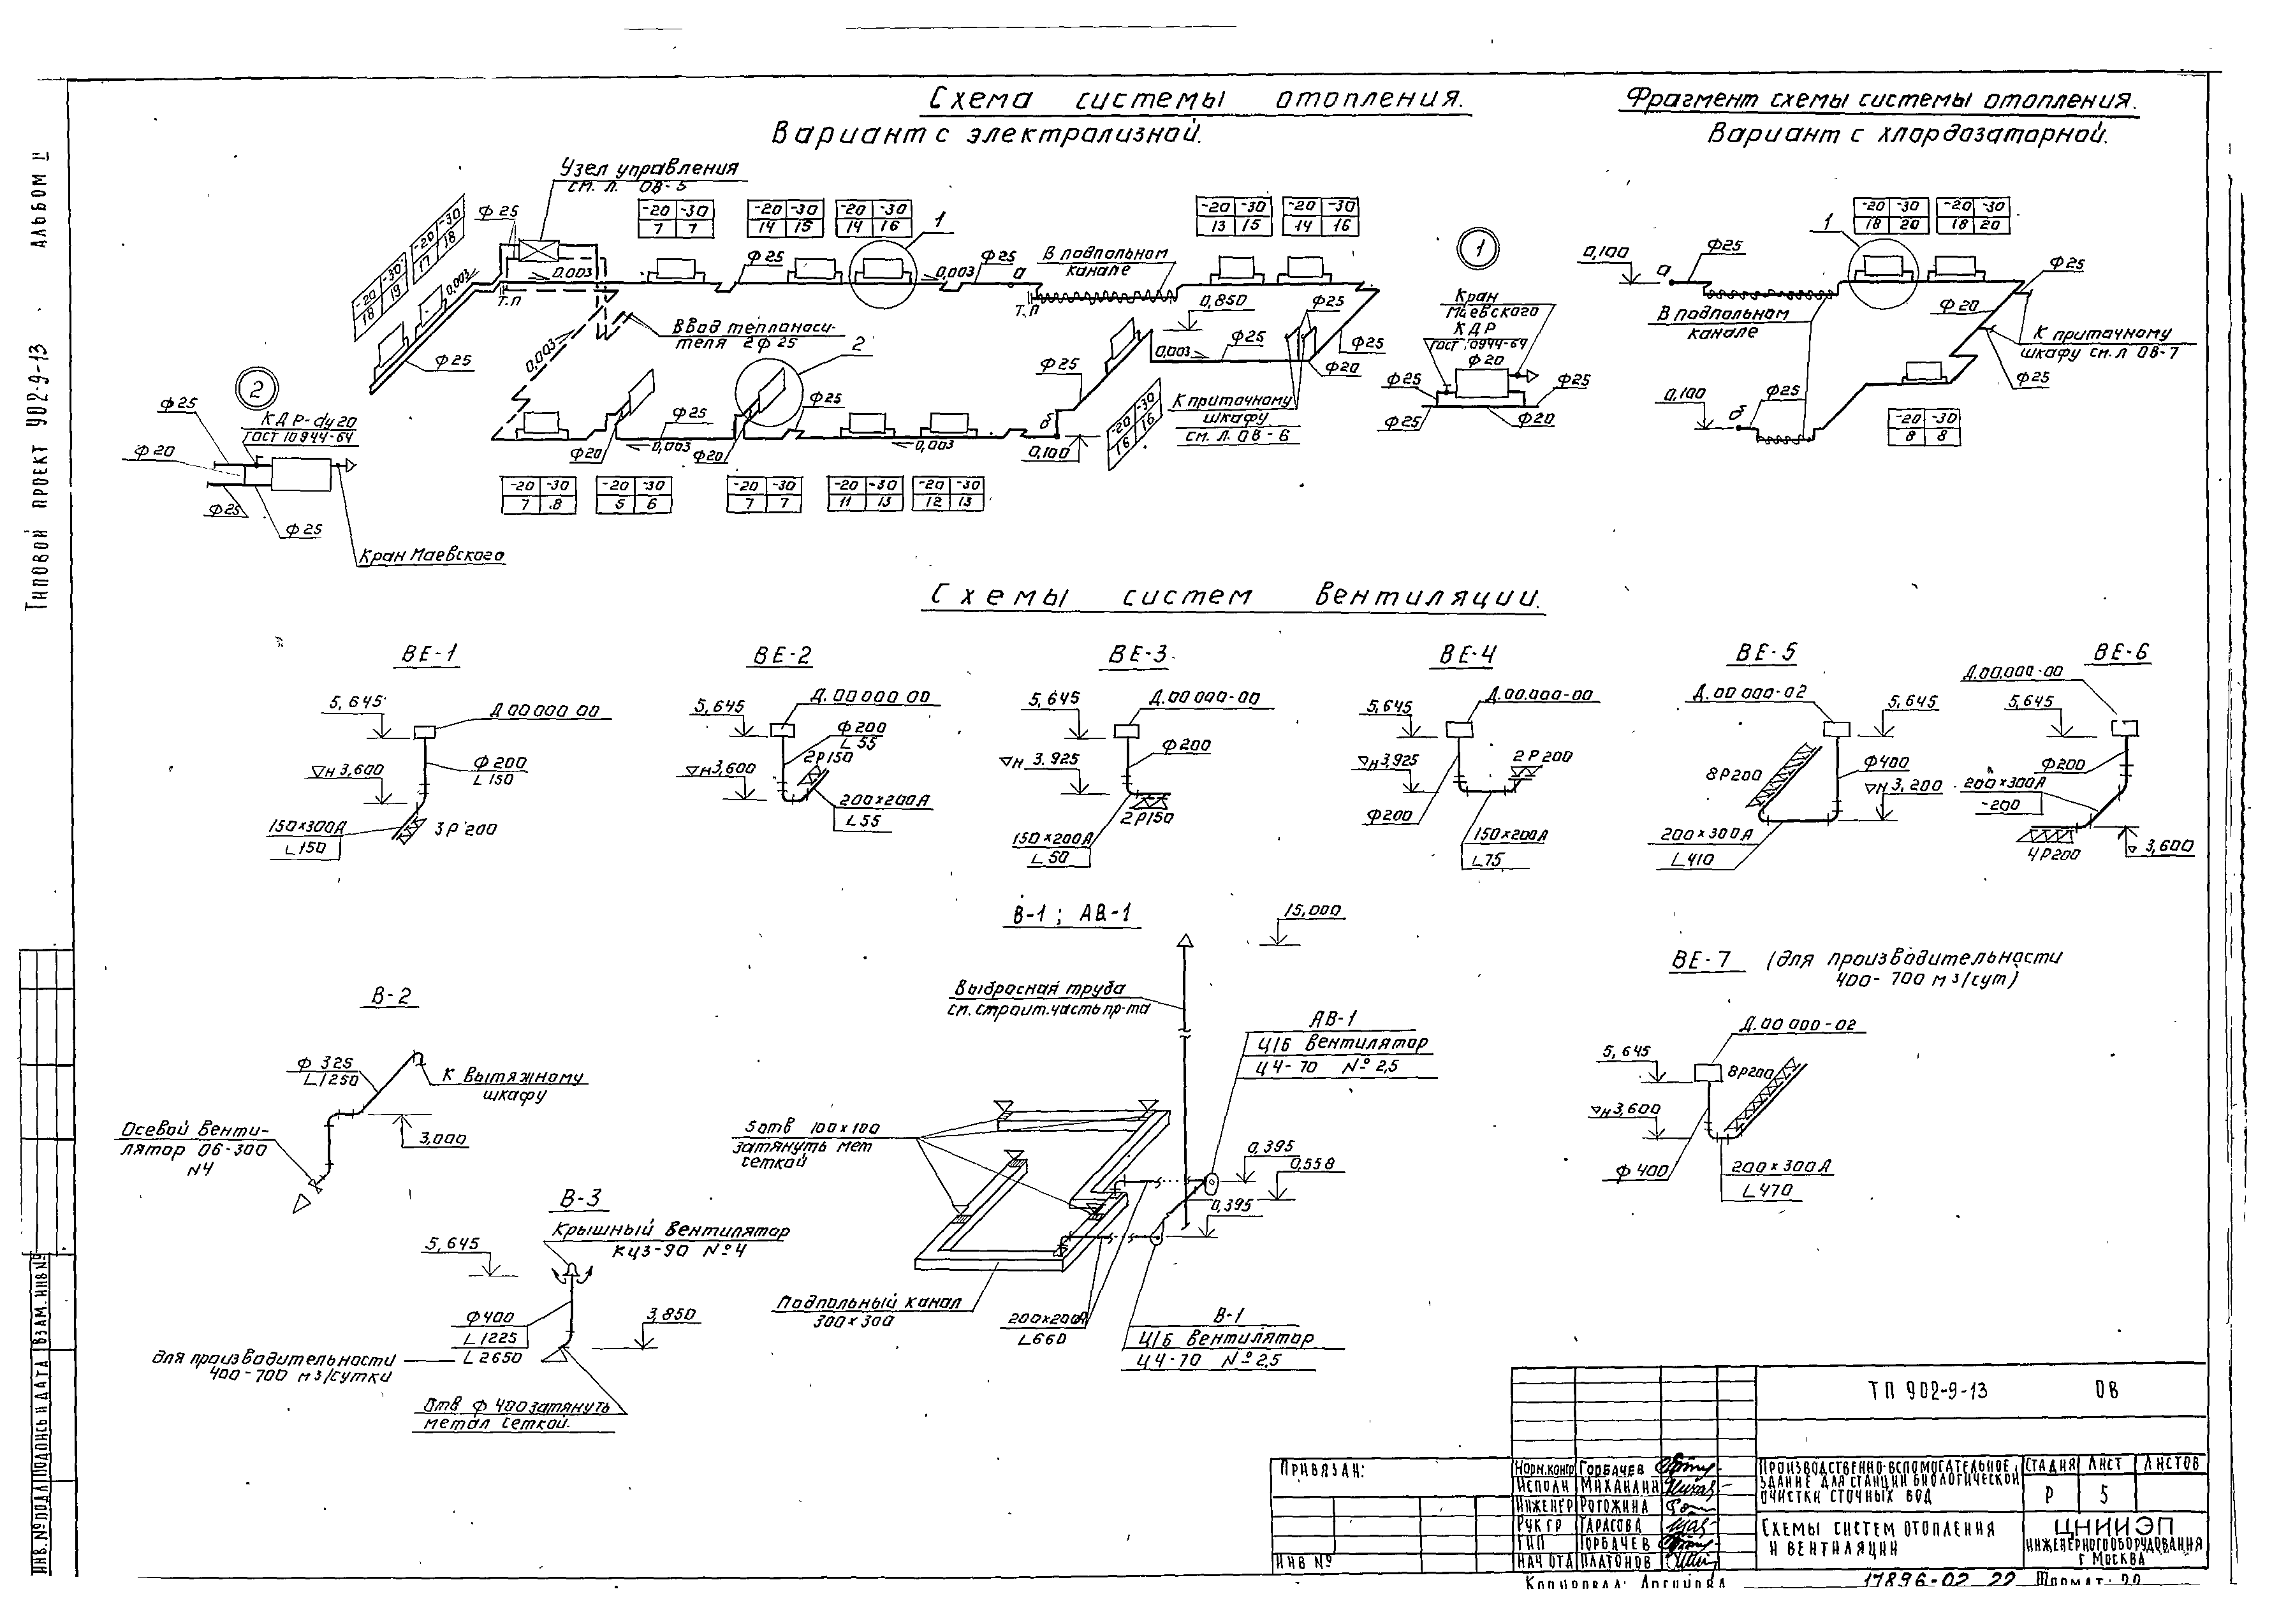 Схема системы отопления.
Вариант с электрализной.
Фрагмент схемы системы отопления.
Вариант с хлордозаторной.
Альбом II
Типовой проект 902-9-13
Узел управления
см. л. ОВ-5
-20 -30
18 19
-20 -30
17 18
Ф25
0,003
-20 -30
7 7
-20 -30
14 15
-20 -30
14 16
1
0,003
Т.п
Ф25
0,003
Ф25
а
В подпольном
канале
Т.п
-20 -30
13 15
-20 -30
14 16
0,850
Ф25
Ф25
Ввод тепланоси-
теля 2Ф25
0,003
2
Ф25
0,003
Ф25
Ф25
Ф20
Ф25
Ф20
0,003
Ф20
Ф25
0,003
б
0,100
-20 -30
16 16
К приточному
шкафу
см. л. ОВ-6
-20 -30
7 8
-20 -30
5 6
-20 -30
7 7
-20 -30
11 13
-20 -30
12 13
2
Ф25
КДР-dу20
ГОСТ 10944-64
Ф20
Ф25
Ф25
Кран Маевского
1
Кран
Маевского
КДР
ГОСТ 10944-64
Ф20
Ф25
Ф25
Ф25
Ф20
0,100
а
Ф25
1
-20 -30
18 20
-20 -30
18 20
Ф25
Ф20
В подпольном
канале
К приточному
шкафу см. л ОВ-7
Ф25
0,100
б
Ф25
-20 -30
8 8
Схемы систем вентиляции.
ВЕ-1
5,645
Д 00 000 00
Ф200
L150
▽н 3,600
150×300А
L150
3Р200
ВЕ-2
5,645
Д. 00 000 00
Ф200
L55
2Р150
▽н3,600
200×200А
L55
ВЕ-3
5,645
Д. 00 000-00
Ф200
▽н 3.925
150×200А
L50
2Р150
ВЕ-4
5,645
Д.00.000-00
▽н3,925
2Р200
Ф200
150×200А
L75
ВЕ-5
Д.00 000-02
5,645
8Р200
Ф400
▽н3,200
200×300А
L410
ВЕ-6
Д.00,000-00
5,645
Ф200
200×300А
-200
4Р200
▽ 3,600
В-2
Ф 325
L1250
К вытяжному
шкафу
3,000
Осевой венти-
лятор 06-300
N4
В-1; АВ-1
15,000
Выбросная труба
см. строит. часть пр-та
АВ-1
Ц/Б вентилятор
Ц4-70 №2,5
5отв 100×100
затянуть мет
сеткой
0,395
0,558
0,395
Подпольный канал
300×300
200×200А
L660
В-1
Ц/Б вентилятор
Ц4-70 №2,5
ВЕ-7 (для производительности
400-700 м3/сут)
Д.00 000-02
5,645
8Р200
▽н3,600
Ф400
200×300А
L470
В-3
Крышный вентилятор
КЦ3-90 №4
5,645
Ф400
L1225
L2650
3,850
для производительности
400-700 м3/сутки
Отв Ф 400 затянуть
метал сеткой.
ТП 902-9-13 ОВ
Привязан:
Инв №
Норм.контр Горбачев
Исполн Михайлин
Инженер Рогожина
Рук гр Тарасова
ГИП Горбачев
Нач отд Платонов
Производственно-вспомогательное
здание для станции биологической
очистки сточных вод
Стадия Лист Листов
Р 5
Схемы систем отопления
и вентиляции
ЦНИИЭП
инженерного оборудования
г Москва
17896-02 22 Формат: 22
Инв.№подл Подпись и дата Взам.инв№